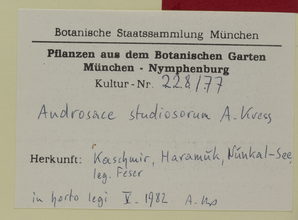 Botanische Staatssammlung München
Pflanzen aus dem Botanischen Garten
München - Nymphenburg
Kultur - Nr. 228/77
Androsace studiosorum A. Kress
Herkunft: Kaschmir, Haramuk, Nunkal-See,
leg. Feser
in horto legi V. 1982